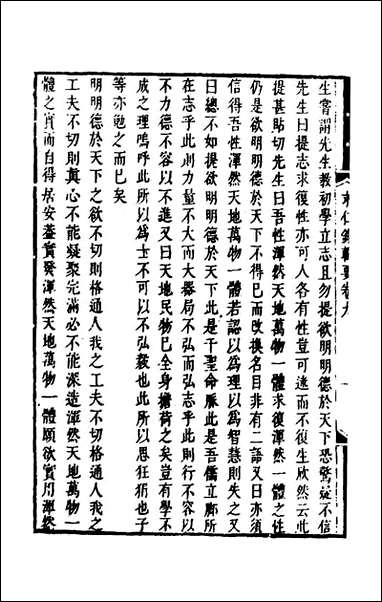 生嘗謂先生教初學立志且勿提欲明明德於天下恐驚疑不信
先生曰提志求復性亦可人各有性豈可遂而不復生欣然云此
提甚貼切先生曰吾性渾然天地萬物一體求復渾然一體之性
仍是欲明明德於天下不得巳而改換名目非有二語又曰亦須
信得吾性渾然天地萬物一體若認以為理以為智慧則失之又
曰總不如提欲明明德於天下此是千聖命脈此是吾儒立腳所
在志乎此則力量不大而大器局不弘而弘志乎此則行不容以
不力德不容以不進又曰天地民物巳全身擔荷之矣豈有學不
成之理嗚呼此所以為士不可以不弘毅也此所以思狂狷也子
等亦勉之而巳矣
明明德於天下之欲不切則格通人我之工夫不切格通人我之
工夫不切則真心不能凝聚完滿必不能深造渾然天地萬物一
體之實而自得居安葢實發渾然天地萬物一體願欲實用渾然
求仁錄輯要卷九
一